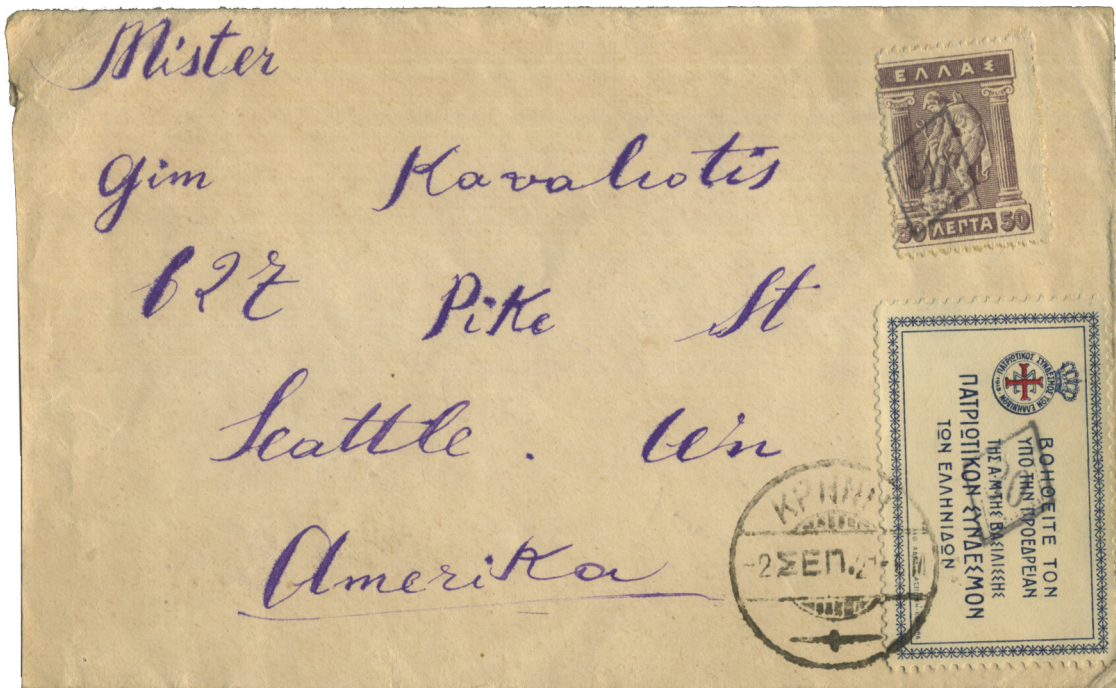 Mister
Gim Kavaliotis
627 Pike St
Seattle. Wn
Amerika
ΕΛΛΑΣ
50 ΛΕΠΤΑ 50
50
ΠΑΤΡΙΩΤΙΚΟΣ ΣΥΝΔΕΣΜΟΣ ΤΩΝ ΕΛΛΗΝΙΔΩΝ
ΒΟΗΘΕΙΤΕ ΤΟΝ
ΥΠΟ ΤΗΝ ΠΡΟΕΔΡΕΙΑΝ
ΤΗΣ Α.Μ ΤΗΣ ΒΑΣΙΛΙΣΣΗΣ
ΠΑΤΡΙΩΤΙΚΟΝ ΣΥΝΔΕΣΜΟΝ
ΤΩΝ ΕΛΛΗΝΙΔΩΝ
-2 ΣΕΠ.